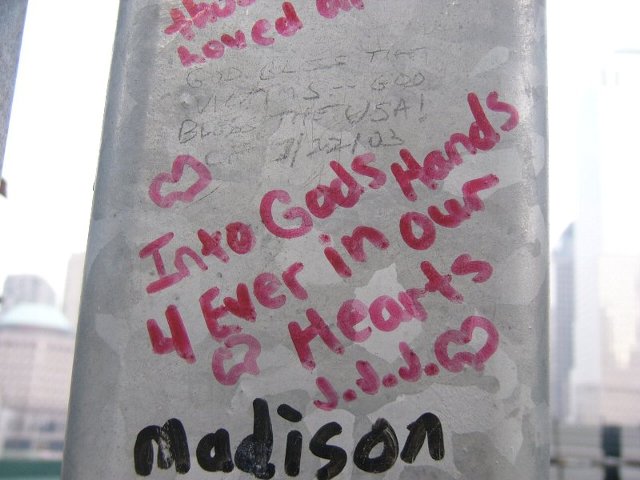 Loved
GOD BLESS THE
VICTIMS -- GOD
BLESS THE USA!
Into Gods Hands
4 Ever in our
Hearts
J.J.J.
madison